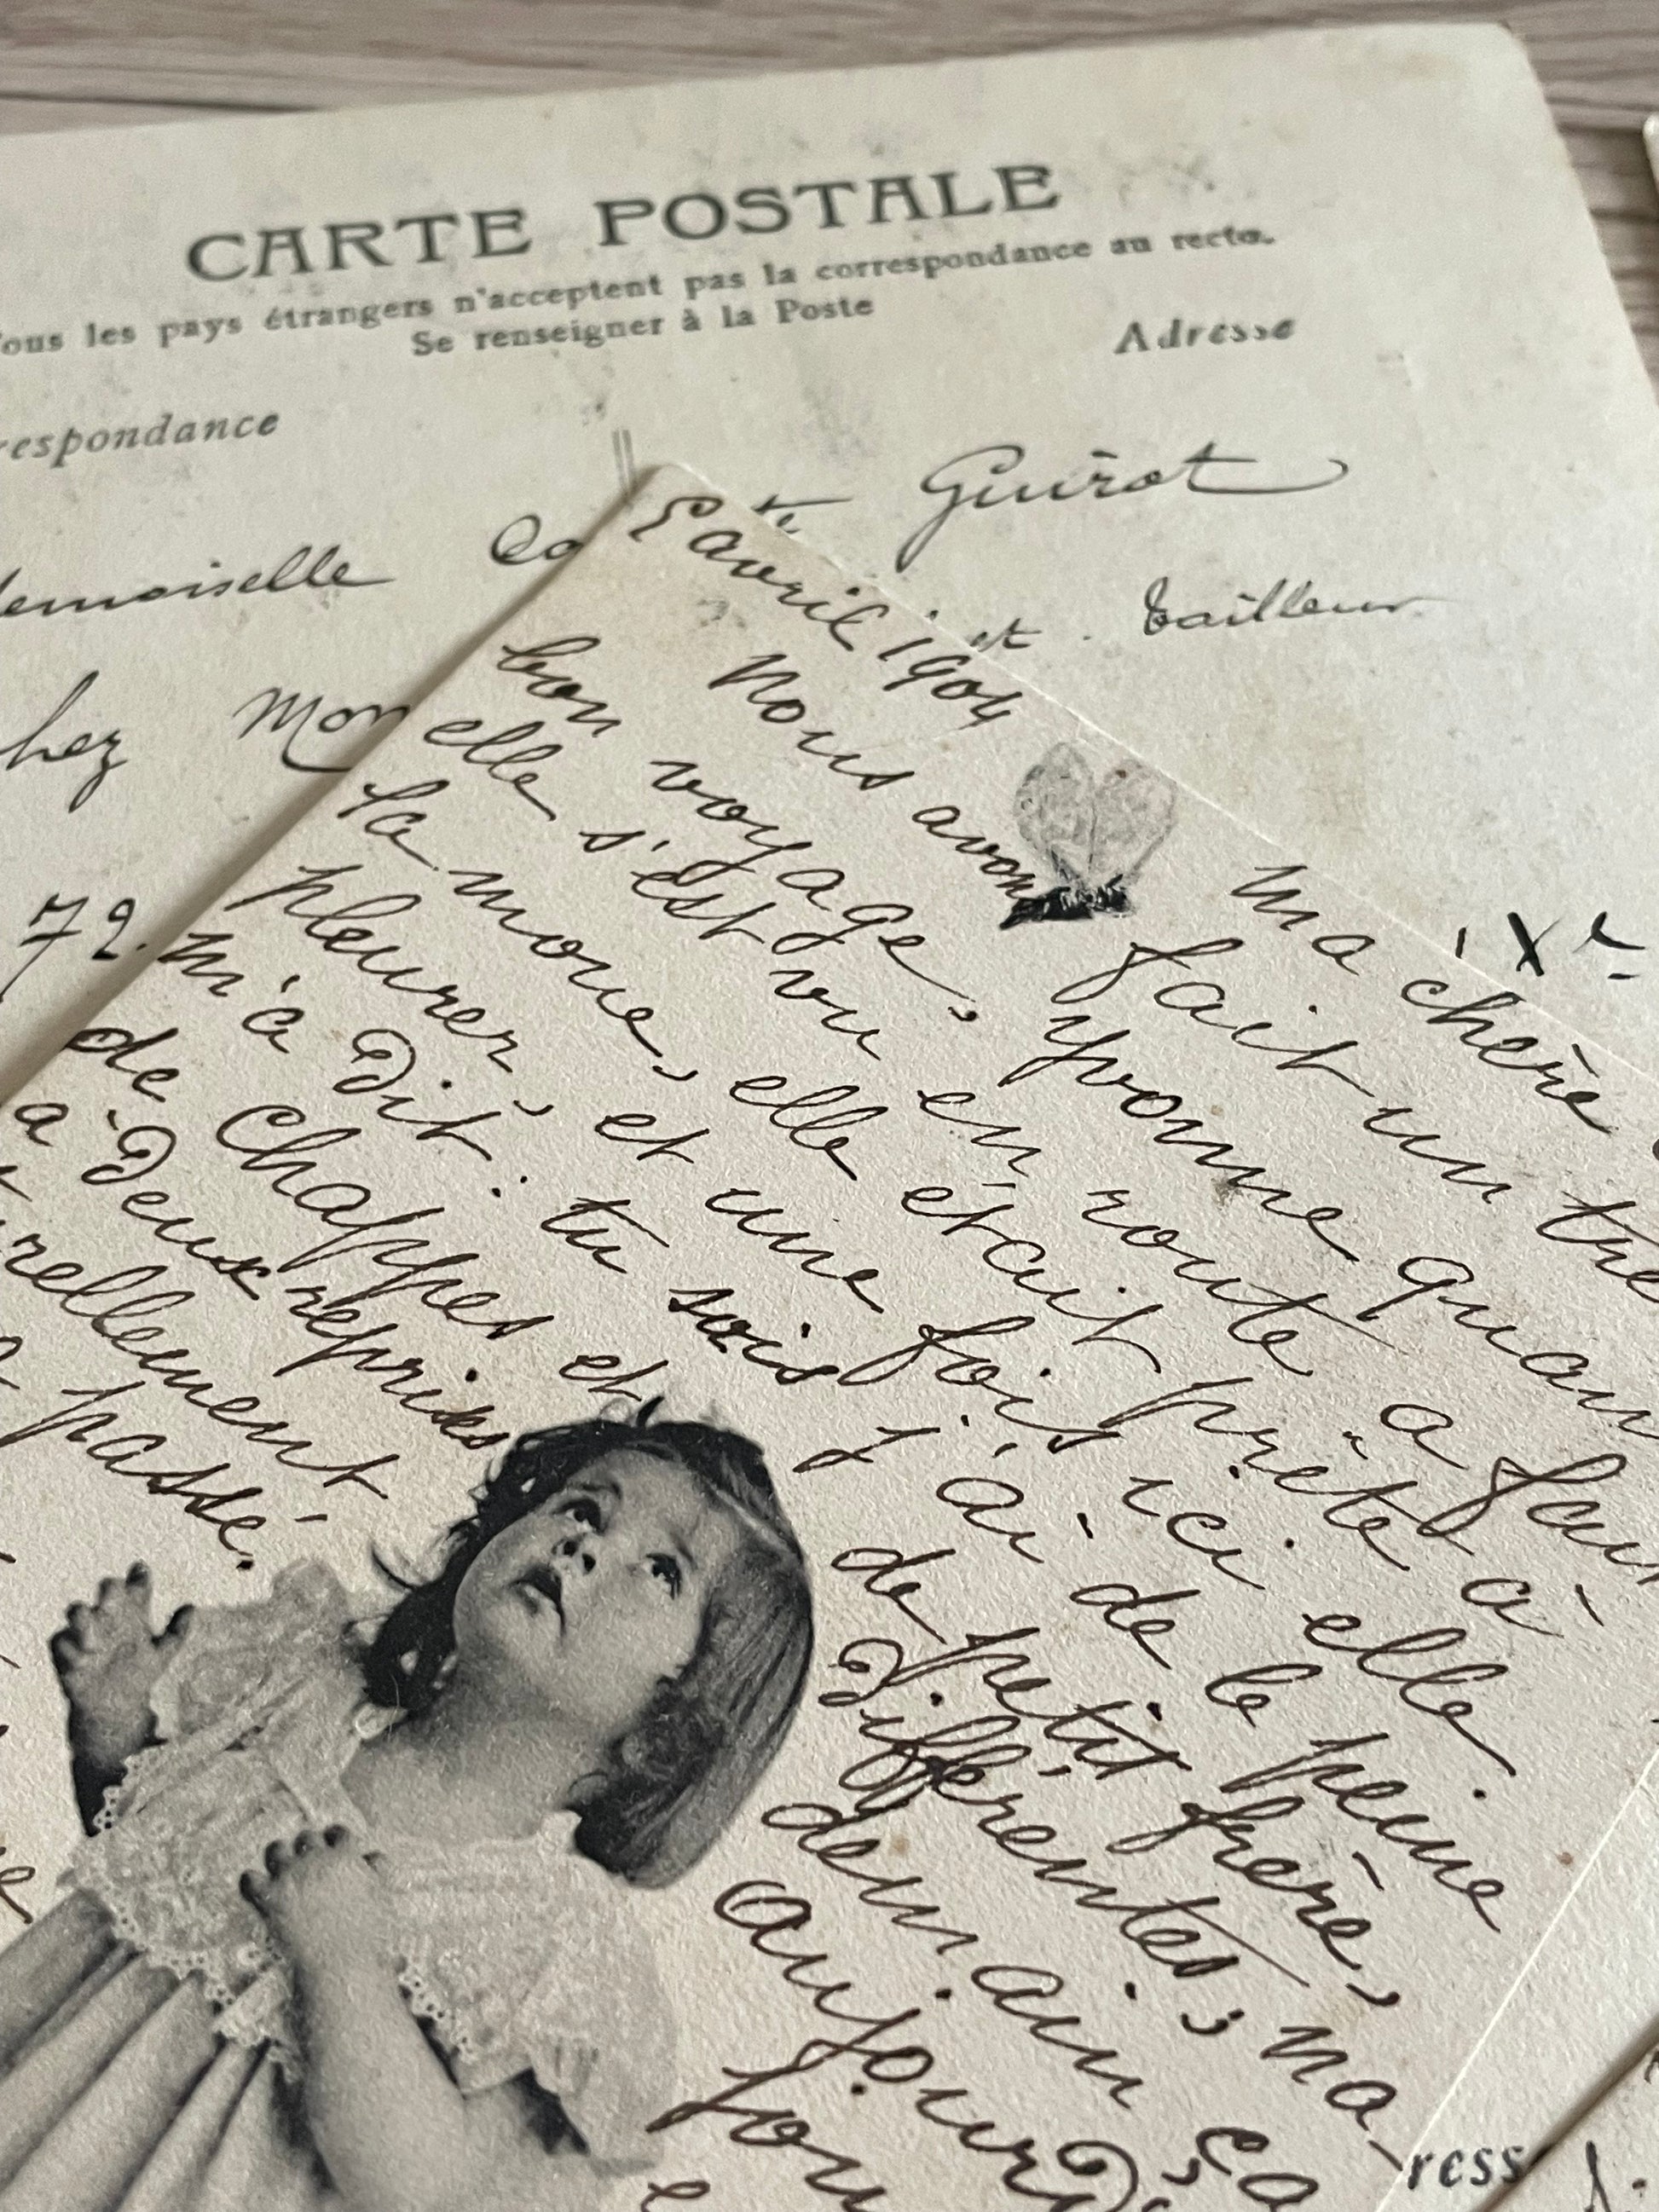 CARTE POSTALE
ous les pays étrangers n'acceptent pas la correspondance au recto.
Se renseigner à la Poste
respondance
Adresse
demoiselle Co Guirot
hez Mon et. tailleur
72. Xe
avril 1904
ma chère
Nous avons fait un trè
bon voyage, yvonne quan
elle s'est vu en route a fai
la moue, elle était prête à
pleurer, et une fois ici elle
m'a dit: tu sais j'ai de le peine
de Chappes et de petit frère,
à deux reprises différentes, na-
rellement demain ça
passé. aujourd
ress